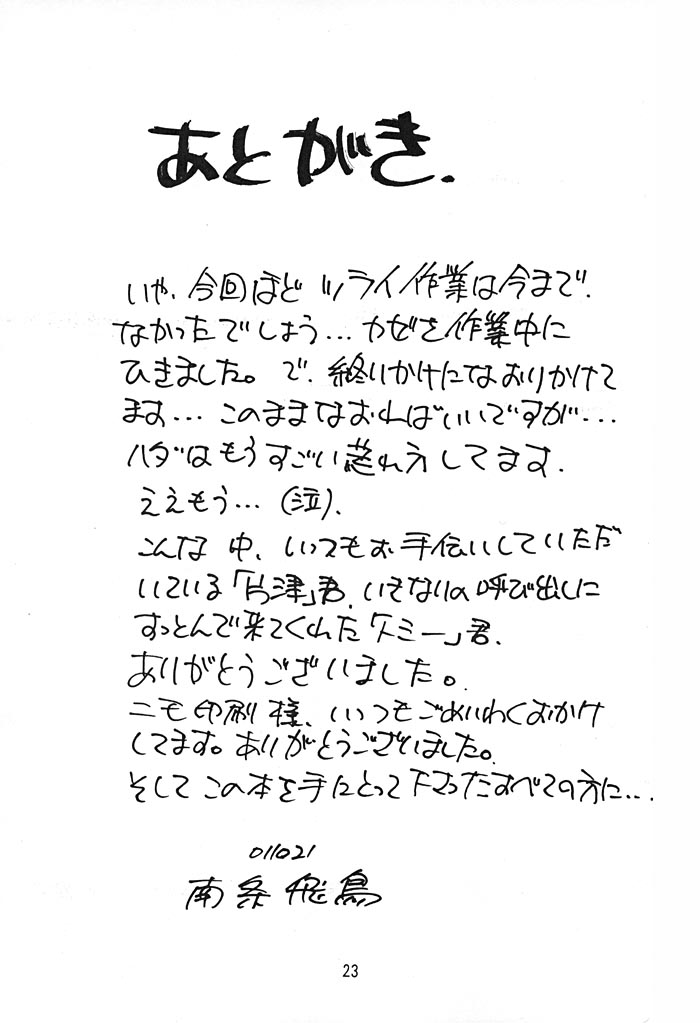 あとがき.
いや、今回ほど ツライ作業は今まで、
なかったでしょう... カゼを作業中に
ひきました。で、終りかけになおりかけて
ます... このままなおればいいですが...
ハダはもうすごい荒れ方してます.
ええもう... (泣).
こんな 中、いつもお手伝いしていただ
いている「片津」君、いきなりの呼び出しに
すっとんで来てくれた「トミー」君、
ありがとうございました。
ニモ印刷様、いつもごめいわくおかけ
してます。ありがとうございました。
そして この本を手にとって下さったすべての方に...
011021
南条飛鳥
23